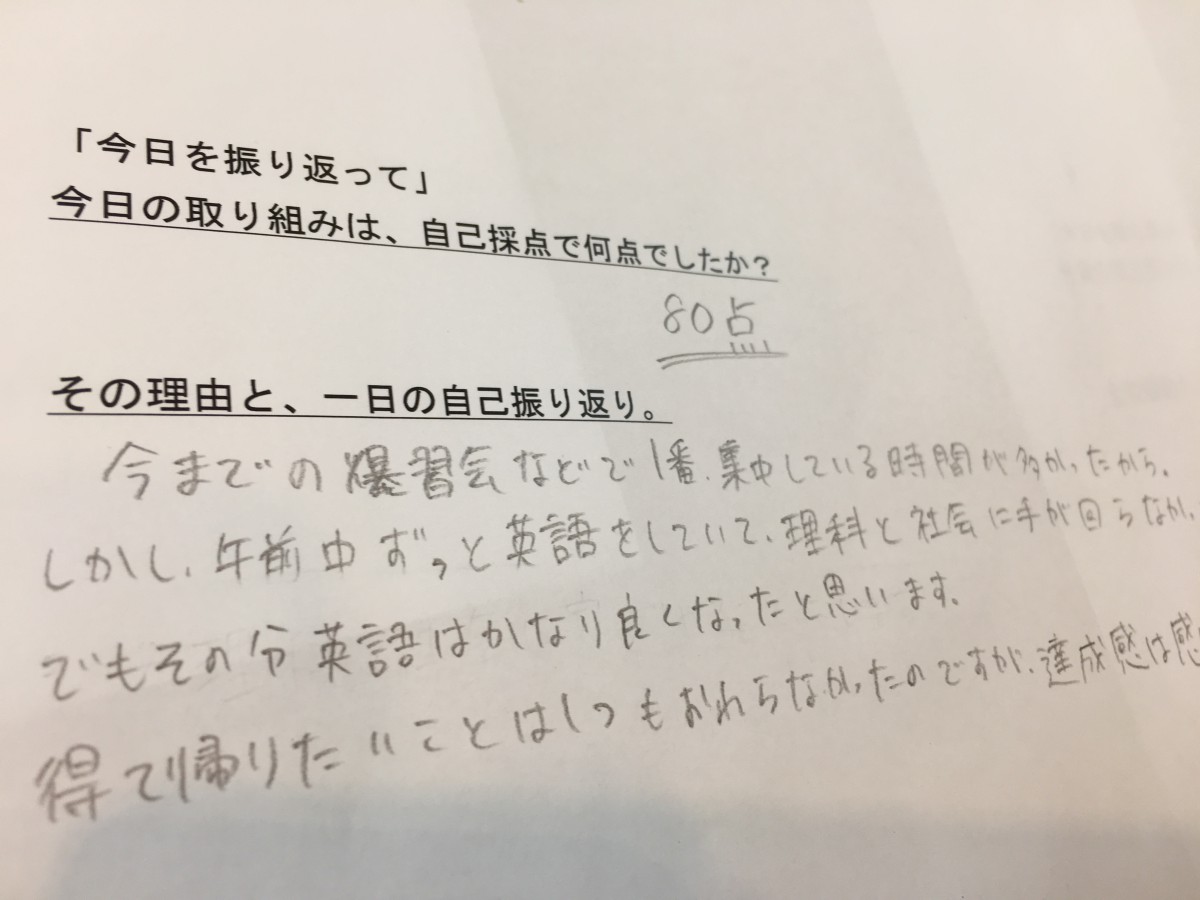 「今日を振り返って」
今日の取り組みは、自己採点で何点でしたか？
80点
その理由と、一日の自己振り返り。
今までの爆習会などで1番、集中している時間が多かったから。
しかし、午前中ずっと英語をしていて、理科と社会に手が回らなかっ
でもその分英語はかなり良くなったと思います。
得て帰りたいことは1つもおわらなかったのですが、達成感は感